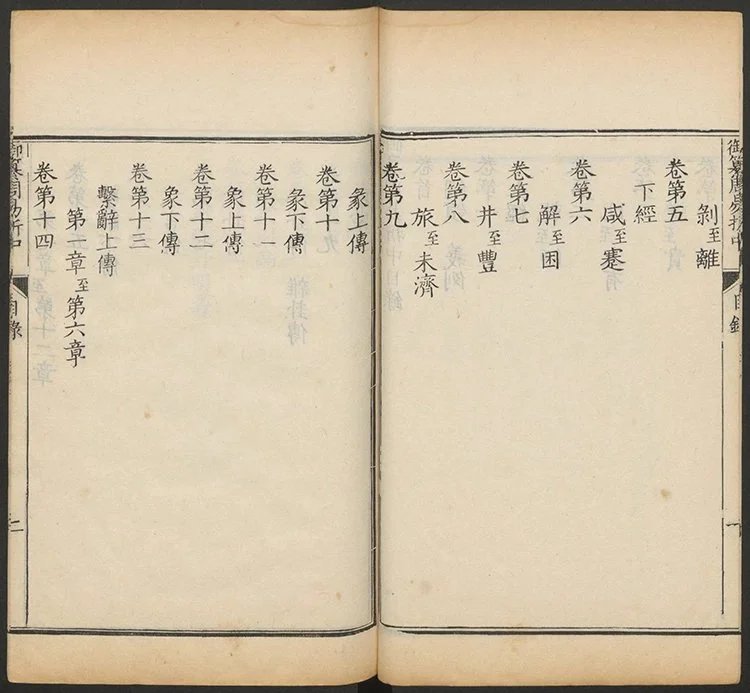 御纂周易折中 目錄 一
剝至離
卷第五
下經
咸至蹇
卷第六
解至困
卷第七
井至豐
卷第八
旅至未濟
卷第九
彖上傳
卷第十
彖下傳
卷第十一
象上傳
卷第十二
象下傳
卷第十三
繫辭上傳
第一章至第六章
卷第十四
御纂周易折中 目錄 二